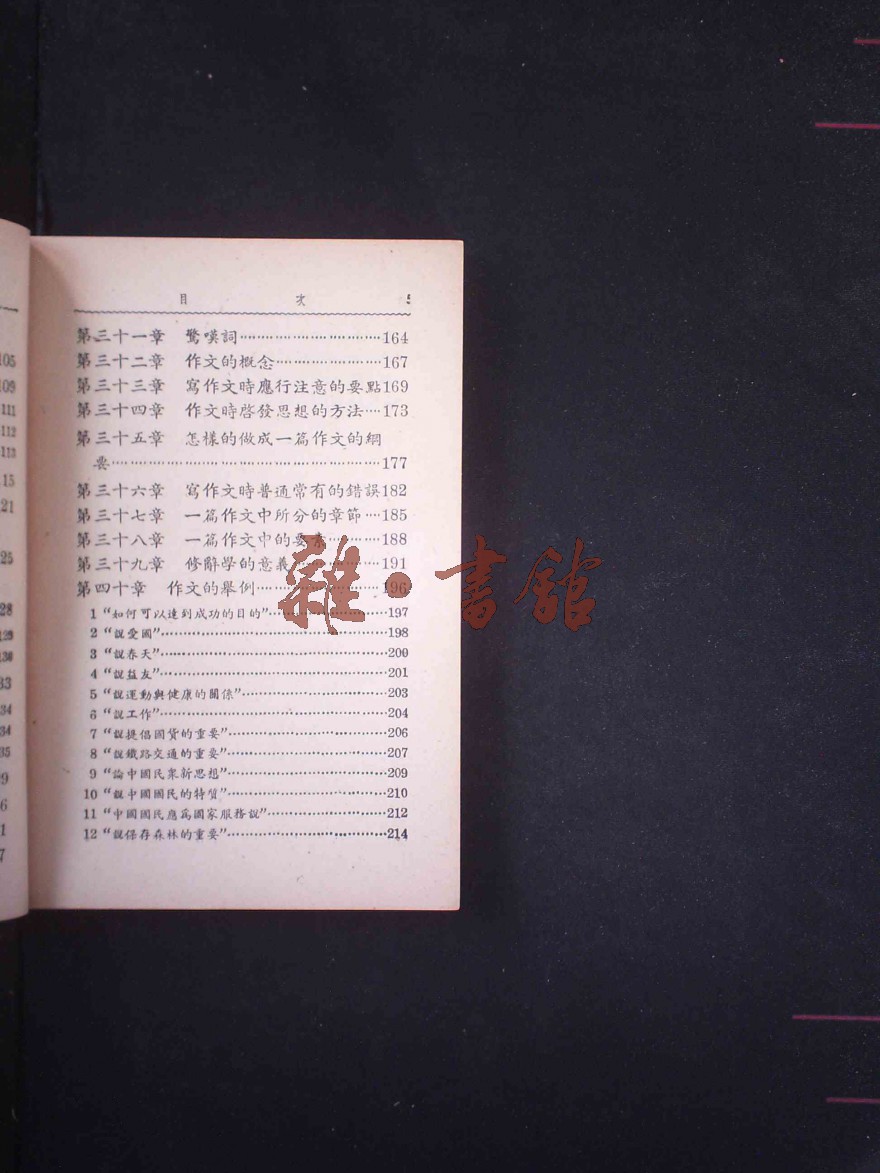 目 次 5
第三十一章 驚嘆詞……………………164
第三十二章 作文的概念………………167
第三十三章 寫作文時應行注意的要點169
第三十四章 作文時啓發思想的方法…173
第三十五章 怎樣的做成一篇作文的綱
要…………………………………………177
第三十六章 寫作文時普通常有的錯誤182
第三十七章 一篇作文中所分的章節…185
第三十八章 一篇作文中的要素………188
第三十九章 修辭學的意義……………191
第四十章 作文的舉例…………………196
1 “如何可以達到成功的目的”………………197
2 “說愛國”……………………………………198
3 “說春天”……………………………………200
4 “說益友”……………………………………201
5 “說運動與健康的關係”……………………203
6 “說工作”……………………………………204
7 “說提倡國貨的重要”………………………206
8 “說鐵路交通的重要”………………………207
9 “論中國民衆新思想”………………………209
10 “說中國國民的特質”………………………210
11 “中國國民應爲國家服務說”………………212
12 “說保存森林的重要”………………………214
105
109
111
112
113
15
21
25
28
129
130
33
34
34
35
9
6
1
7
雜·書館